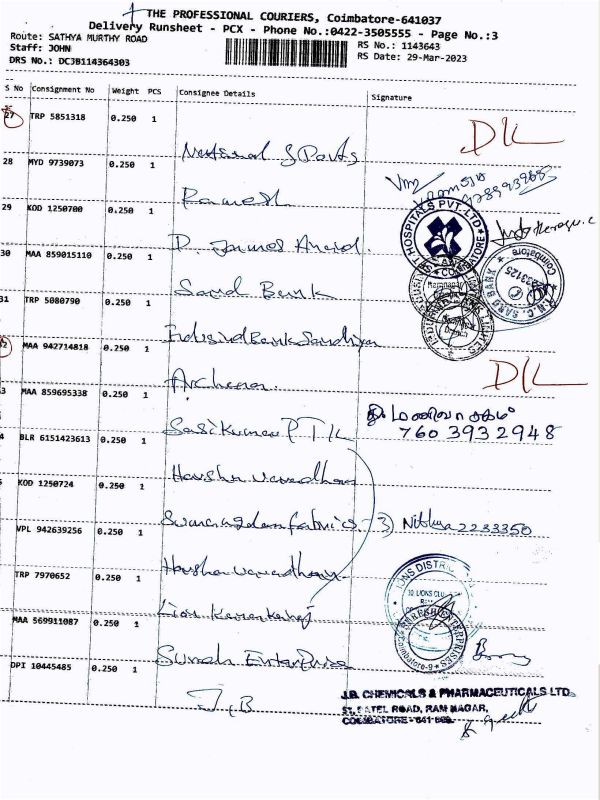 THE PROFESSIONAL COURIERS, Coimbatore-641037
Delivery Runsheet - PCX - Phone No.:0422-3505555 - Page No.:3
Route: SATHYA MURTHY ROAD
Staff: JOHN
DRS No.: DCJB114364303
RS No.: 1143643
RS Date: 29-Mar-2023
S No Consignment No Weight PCS Consignee Details Signature
27 TRP 5851318 0.250 1
National Sports
DL
28 MYD 9739073 0.250 1
Ramesh
29 KOD 1250700 0.250 1
D. James Anand.
HOSPITALS PVT-LTD
COIMBATORE
30 MAA 859015110 0.250 1
Sard Bank
SARD BANK
Coimbatore
31 TRP 5080790 0.250 1
Indusind Bank Sandhya
MAA 942714818 0.250 1
Archena.
DL
MAA 859695338 0.250 1
Sasikumar P T K
760 393 2948
BLR 6151423613 0.250 1
Harsha vardhan
KOD 1250724 0.250 1
fabrics
3) Nithya 2233350
VPL 942639256 0.250 1
Harsha vardhan
TRP 7970652 0.250 1
Lion
LIONS DISTRICT
MAA 569911087 0.250 1
Suresh Enterprise
SURESH ENTERPRISES
Coimbatore-9
DPI 10445485 0.250 1
J.B
J.B. CHEMICALS & PHARMACEUTICALS LTD.
PATEL ROAD, RAM NAGAR,
COIMBATORE - 641 009.